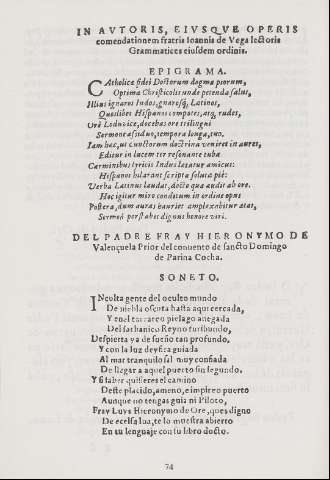 IN AVTORIS, EIVSQVE OPERIS
comendationem fratris Ioannis de Vega lectoris
Grammatices eiusdem ordinis.
EPIGRAMA.
CAtholicæ fidei Doctorum dogma piorum,
Optima Christicolis unde petenda salus,
Illius ignaros Indos, ignarosq́; Latinos,
Quoslibet Hispanos compotes, atq; rudes,
Orè Lodouice, doces hos ore trilingui
Sermone assiduo, tempora longa, tuo.
Iam hæc, ut cunctorum doctrina veniret in aures,
Editur in lucem ter resonante tuba
Carminibus lyricis Indus lætatur amicus:
Hispanos hilarant scripta soluta piè:
Verba Latinus laudat, docto quæ audit ab ore.
Hoc igitur miro conditum in ordine opus
Postera, dum auras hauriet amplexabitur ætas,
Sermo perstabit dignus honore viri.
DEL PADRE FRAY HIERONYMO DE
Valençuela Prior del conuento de sancto Domingo
de Parina Cocha.
SONETO.
INculta gente del oculto mundo
De niebla oscura hasta aqui cercada,
Y en el tartareo pielago anegada
Del sathanico Reyno furibundo,
Despierta ya de sueño tan profundo,
Y con la luz deysica guiada
Al mar tranquilo sal muy confiada
De llegar a aquel puerto sin segundo.
Y si saber quisieres el camino
Deste placido, ameno, e impireo puerto
Aunque no tengas guia ni Piloto,
Fray Luys Hieronymo de Ore, ques digno
De excelsa loa, te lo muestra abierto
En tu lenguaje con su libro docto.
74